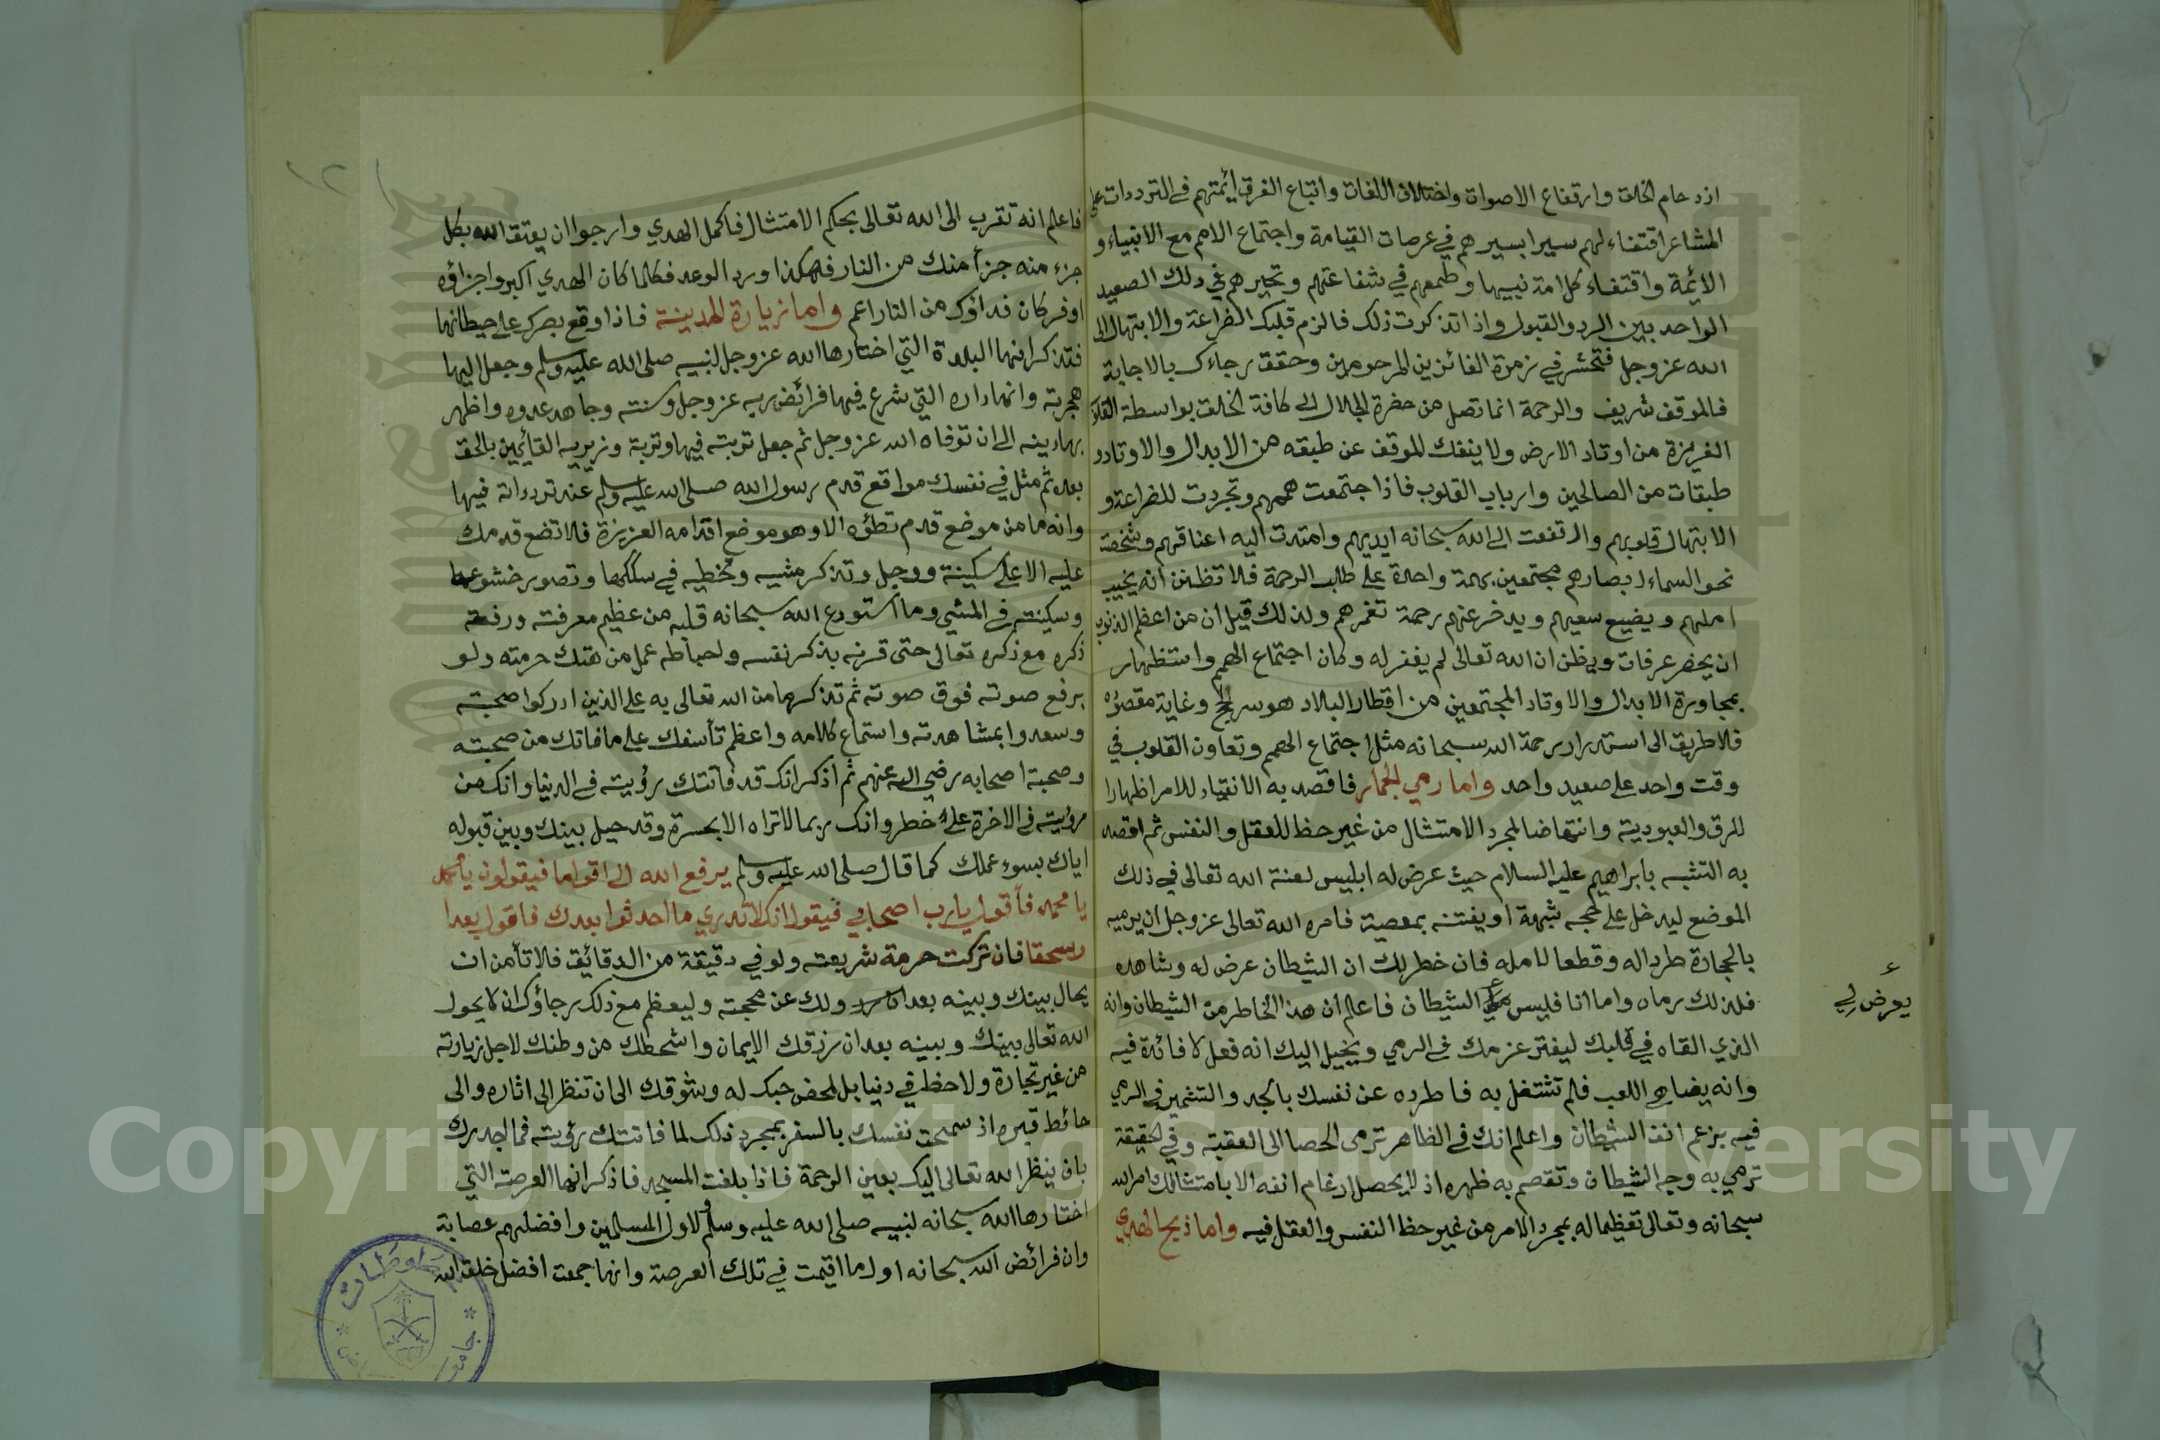 ازدحام الخلق وارتفاع الاصوات واختلاف اللغات واتباع الفرق ائمتهم في الترددات على
المشاعر اقتفاء لهم سيرا بسيرهم في عرصات القيامة واجتماع الامم مع الانبياء و
الائمة واقتفاء كل امة نبيها وطمعهم في شفاعتهم وتحيرهم في ذلك الصعيد
الواحد بين الرد والقبول واذا تذكرت ذلك فالزم قلبك الضراعة والابتهال الى
الله عز وجل فتحشر في زمرة الفائزين المرحومين وحقق رجاءك بالاجابة
فالموقف شريف والرحمة انما تصل من حضرة الجلال الى كافة الخلق بواسطة القلوب
العزيزة من اوتاد الارض ولا ينفك الموقف عن طبقه من الابدال والاوتاد و
طبقات من الصالحين وارباب القلوب فاذا اجتمعت هممهم وتجردت للضراعة و
الابتهال قلوبهم وارتفعت الى الله سبحانه ايديهم وامتدت اليه اعناقهم وشخصت
نحو السماء ابصارهم مجتمعين بهمة واحدة على طلب الرحمة فلا تظنن انه يخيب
املهم ويضيع سعيهم ويدخر عنهم رحمة تغمرهم ولذلك قيل ان من اعظم الذنوب
ان يحضر عرفات ويظن ان الله تعالى لم يغفر له وكان اجتماع الهمم واستظهار
بمجاورة الابدال والاوتاد المجتمعين من اقطار البلاد هو سر الحج وغاية مقصوده
فلا طريق الى استدرار رحمة الله سبحانه مثل اجتماع الهمم وتعاون القلوب في
وقت واحد على صعيد واحد واما رمي الجمار فاقصد به الانقياد للامر اظهارا
للرق والعبودية وانتهاضا لمجرد الامتثال من غير حظ للعقل والنفس ثم اقصد
به التشبه بابراهيم عليه السلام حيث عرض له ابليس لعنة الله تعالى في ذلك
الموضع ليدخل على حجه شبهة او يفتنه بمعصية فامره الله تعالى عز وجل ان يرميه
بالحجارة طردا له وقطعا لامله فان خطر لك ان الشيطان عرض له وشاهده
فلذلك رماه واما انا فليس الشيطان فاعلم ان هذا الخاطر من الشيطان وانه
يعرض لي
الذي القاه في قلبك ليفتر عزمك في الرمي ويخيل اليك انه فعل لا فائدة فيه
وانه يضاهي اللعب فلم تشتغل به فاطرده عن نفسك بالجد والتشمير في الرمي
فيه برغم انف الشيطان واعلم انك في الظاهر ترمى الحصا الى العقبة وفي الحقيقة
ترمي به وجه الشيطان وتقصم به ظهره اذ لا يحصل ارغام انفه الا بامتثالك امر الله
سبحانه وتعالى تعظيما له بمجرد الامر من غير حظ النفس والعقل فيه واما ذبح الهدي
فاعلم انه تقرب الى الله تعالى بحكم الامتثال فاكمل الهدي وارجوا ان يعتق الله بكل
جزء منه جزأ منك من النار فهكذا ورد الوعد فكلما كان الهدي اكبر واجزاؤه
اوفر كان فداؤك من النار اعم واما زيارة المدينة فاذا وقع بصرك على حيطانها
فتذكر انها البلدة التي اختارها الله عز وجل لنبيه صلى الله عليه وسلم وجعل اليها
هجرته وانها داره التي شرع فيها فرائض ربه عز وجل وسنته وجاهد عدوه واظهر
بها دينه الى ان توفاه الله عز وجل ثم جعل تربته فيها وتربة وزيريه القائمين بالحق
بعده ثم مثل في نفسك مواقع قدم رسول الله صلى الله عليه وسلم عند تردداته فيها
وانه ما من موضع قدم تطؤه الا وهو موضع اقدامه العزيزة فلا تضع قدمك
عليه الا على سكينة ووجل وتذكر مشيه وتخطيه في سككها وتصور خشوعه
وسكينته في المشي وما استودع الله سبحانه قلبه من عظيم معرفته ورفعة
ذكره مع ذكره تعالى حتى قرنه بذكر نفسه ولحباطه عمل من هتك حرمته ولو
برفع صوته فوق صوته ثم تذكر ما من الله تعالى به على الذين ادركوا صحبته
وسعدوا بمشاهدته واستماع كلامه واعظم تأسفك على ما فاتك من صحبته
وصحبة اصحابه رضي الله عنهم ثم اذكر انك قد فاتتك رؤيته في الدنيا وانك من
رؤيته في الاخرة على خطر وانك ربما لا تراه الا بحسرة وقد حيل بينك وبين قبوله
اياك بسوء عملك كما قال صلى الله عليه وسلم يرفع الله الى اقواما فيقولون يا محمد
يا محمد فأقول يا رب اصحابي فيقول انك لا تدري ما احدثوا بعدك فاقول بعدا
وسحقا فان تركت حرمة شريعته ولو في دقيقة من الدقائق فلا تأمن ان
يحال بينك وبينه بعدولك عن محجته وليعظم مع ذلك رجاؤك ان لا يحول
الله تعالى بينك وبينه بعد ان رزقك الايمان واشخطك من وطنك لاجل زيارته
من غير تجارة ولا حظ في دنيا بل لمحض حبك له وشوقك الى ان تنظر الى اثاره والى
حائط قبره اذ سمحت نفسك بالسفر بمجرد ذلك لما فاتتك رؤيته فما اجدرك
بان ينظر الله تعالى اليك بعين الرحمة فاذا بلغت المسجد فاذكر انها العرصة التي
اختارها الله سبحانه لنبيه صلى الله عليه وسلم ولاول المسلمين وافضلهم عصابة
وان فرائض الله سبحانه اول ما اقيمت في تلك العرصة وانها جمعت افضل خلق الله
Copyright © King Saud University